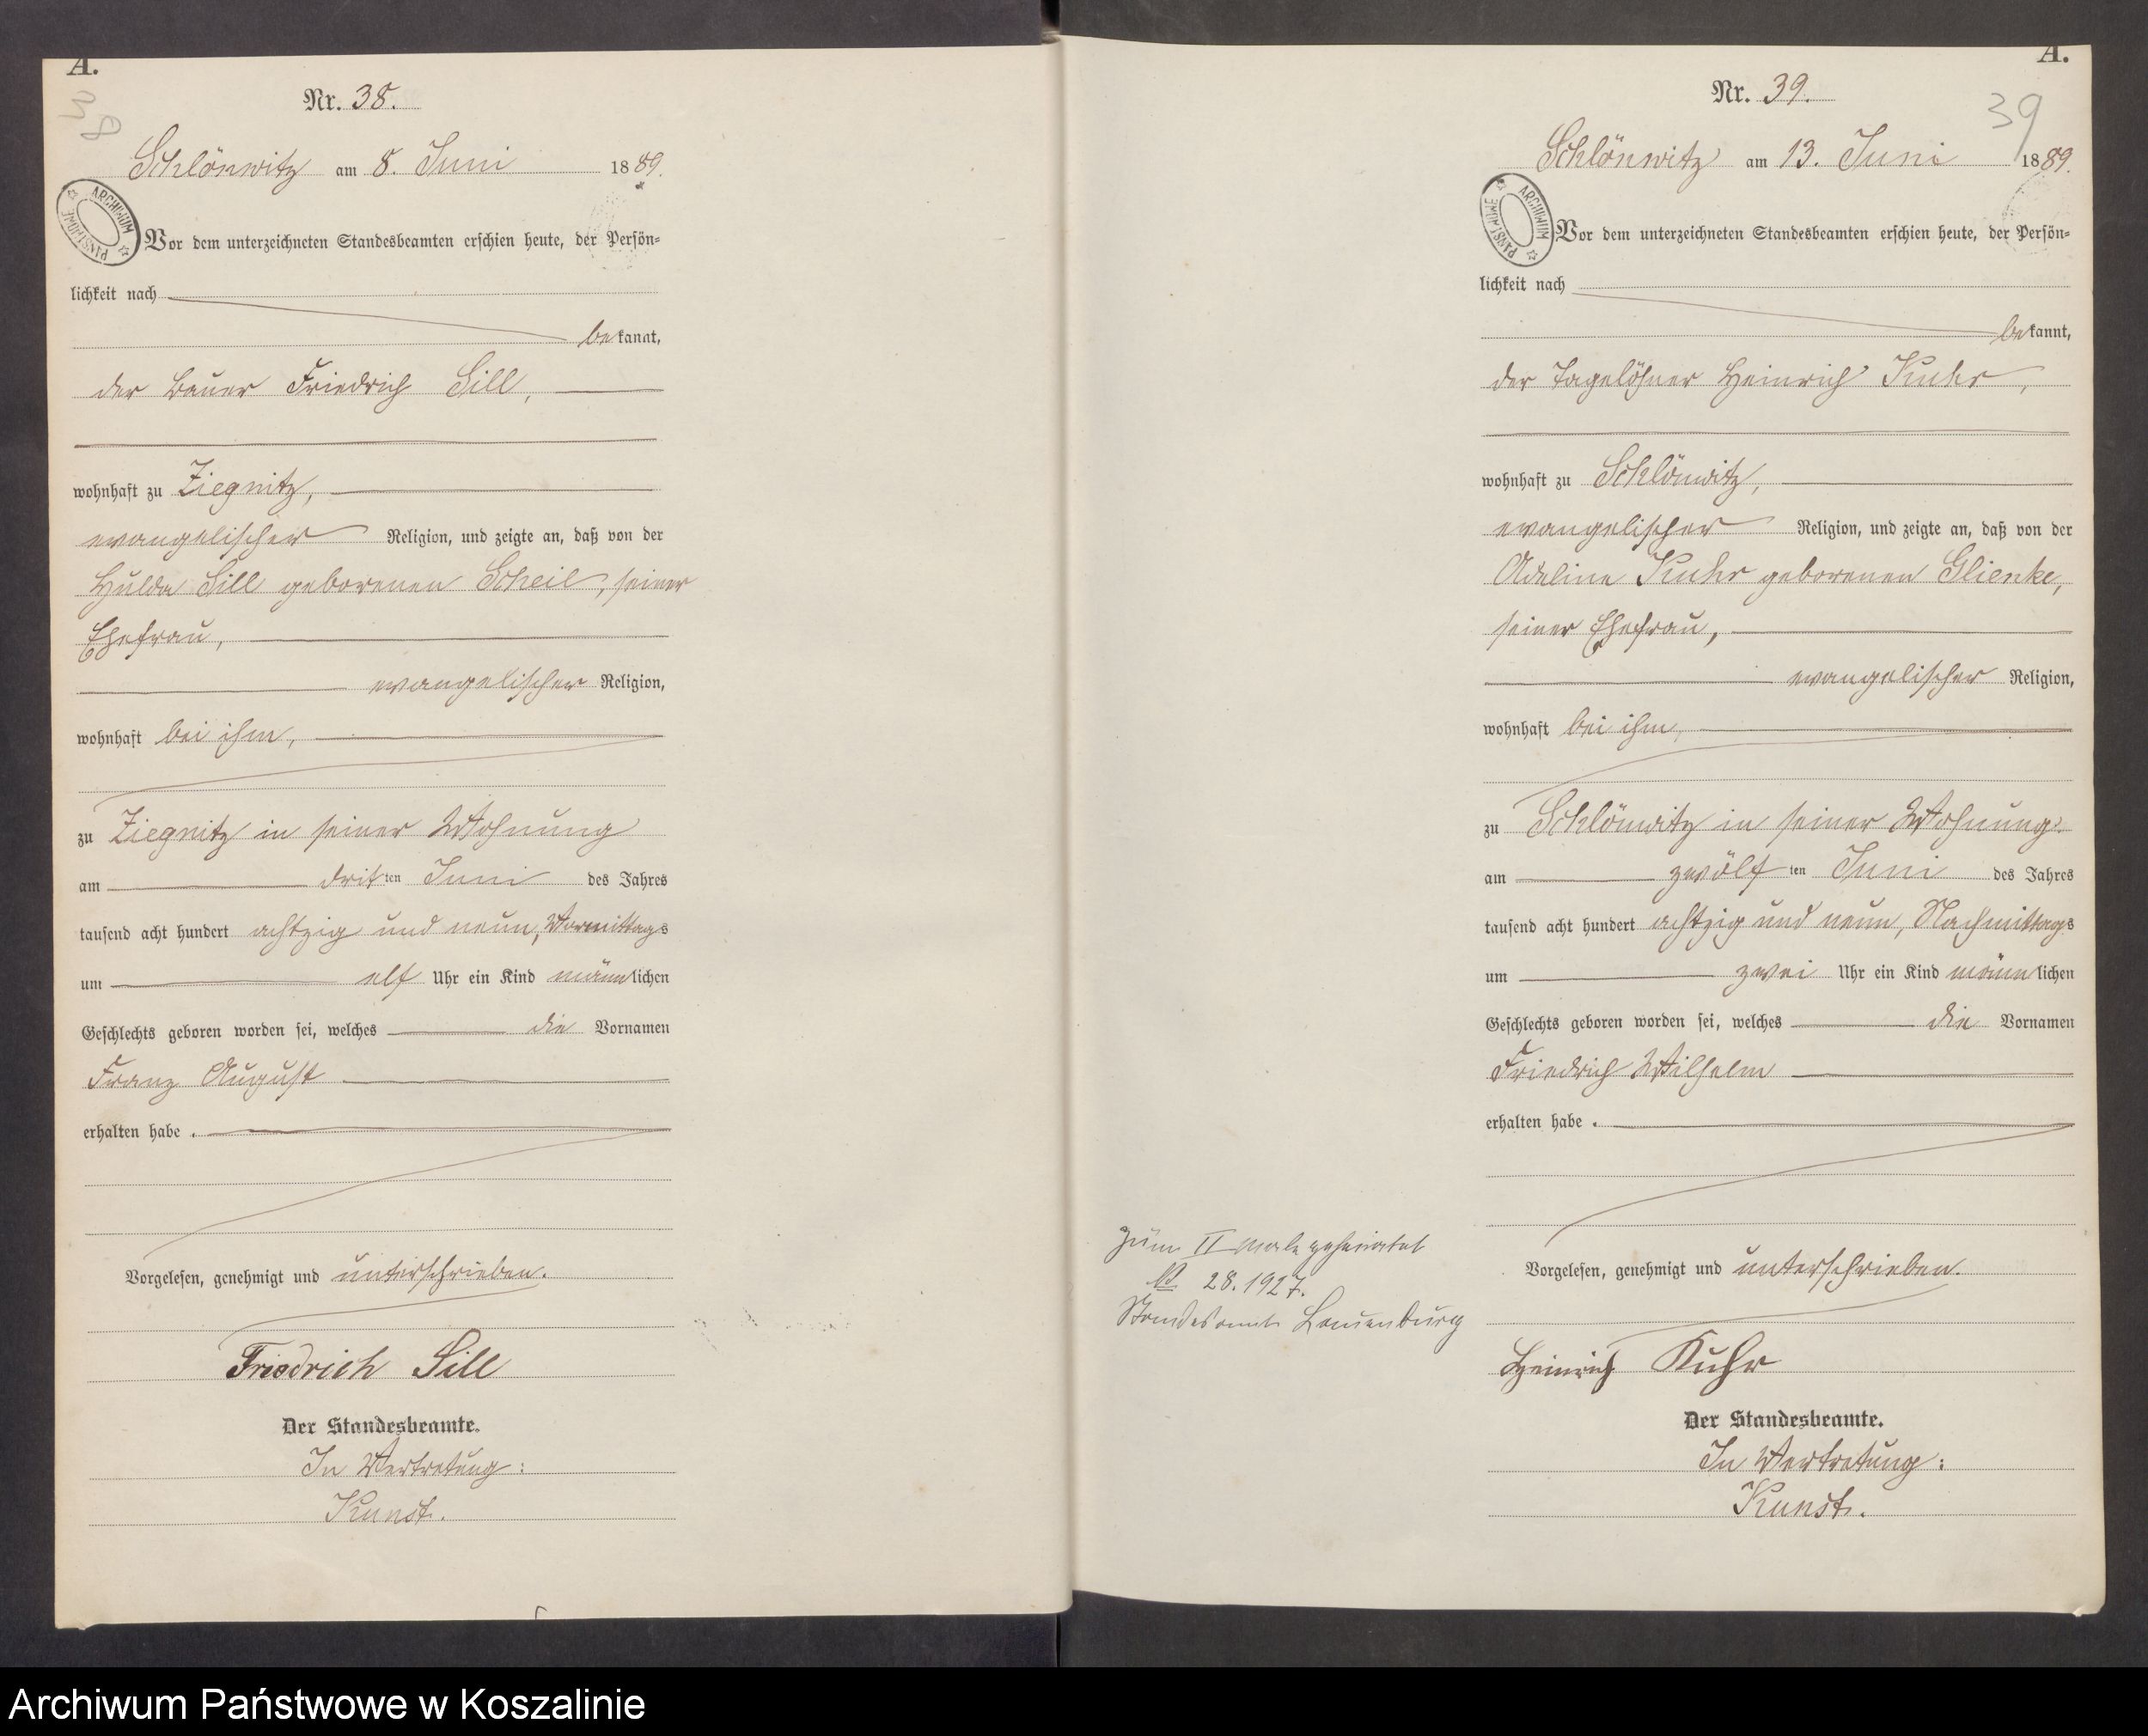 A.
38
Nr. 38.
Schlönwitz am 8. Juni 1889.
ARCHIWUM PAŃSTWOWE
Vor dem unterzeichneten Standesbeamten erschien heute, der Persön-
lichkeit nach
bekannt,
der Bauer Friedrich Sill,
wohnhaft zu Ziegnitz,
evangelischer Religion, und zeigte an, daß von der
Hulda Sill geborenen Scheil, seiner
Ehefrau,
evangelischer Religion,
wohnhaft bei ihm,
zu Ziegnitz in seiner Wohnung
am dritten Juni des Jahres
tausend acht hundert achtzig und neun, Vormittags
um elf Uhr ein Kind männlichen
Geschlechts geboren worden sei, welches die Vornamen
Franz August
erhalten habe.
Vorgelesen, genehmigt und unterschrieben.
Friedrich Sill
Der Standesbeamte.
In Vertretung:
Kunst.
A.
39
Nr. 39.
Schlönwitz am 13. Juni 1889.
ARCHIWUM PAŃSTWOWE
Vor dem unterzeichneten Standesbeamten erschien heute, der Persön-
lichkeit nach
bekannt,
der Tagelöhner Heinrich Kuhr,
wohnhaft zu Schlönwitz,
evangelischer Religion, und zeigte an, daß von der
Adeline Kuhr geborenen Glienke,
seiner Ehefrau,
evangelischer Religion,
wohnhaft bei ihm,
zu Schlönwitz in seiner Wohnung
am zwölften Juni des Jahres
tausend acht hundert achtzig und neun, Nachmittags
um zwei Uhr ein Kind männlichen
Geschlechts geboren worden sei, welches die Vornamen
Friedrich Wilhelm
erhalten habe.
Vorgelesen, genehmigt und unterschrieben.
Heinrich Kuhr
Der Standesbeamte.
In Vertretung:
Kunst.
Zum II male geheiratet
28. 1927.
Standesamt Lauenburg
Archiwum Państwowe w Koszalinie